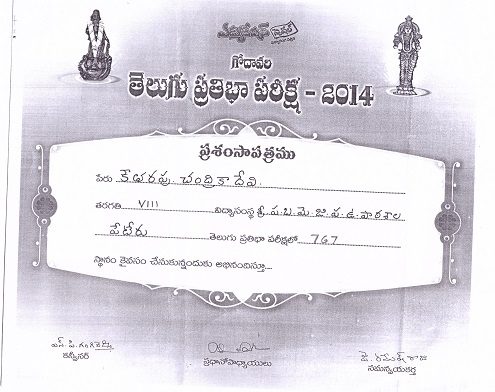 గోదావరి
తెలుగు ప్రతిభా పరీక్ష - 2014
ప్రశంసాపత్రము
పేరు కేశవరపు చంద్రికా దేవి
తరగతి VIII విద్యాసంస్థ శ్రీ.ప.బ.మె.జి.ప.ఉ.పాఠశాల
పేటేరు తెలుగు ప్రతిభా పరీక్షలో 767
స్థానం కైవసం చేసుకున్నందుకు అభినందిస్తూ...
కన్వీనర్ ప్రధానోపాధ్యాయులు సమన్వయకర్త